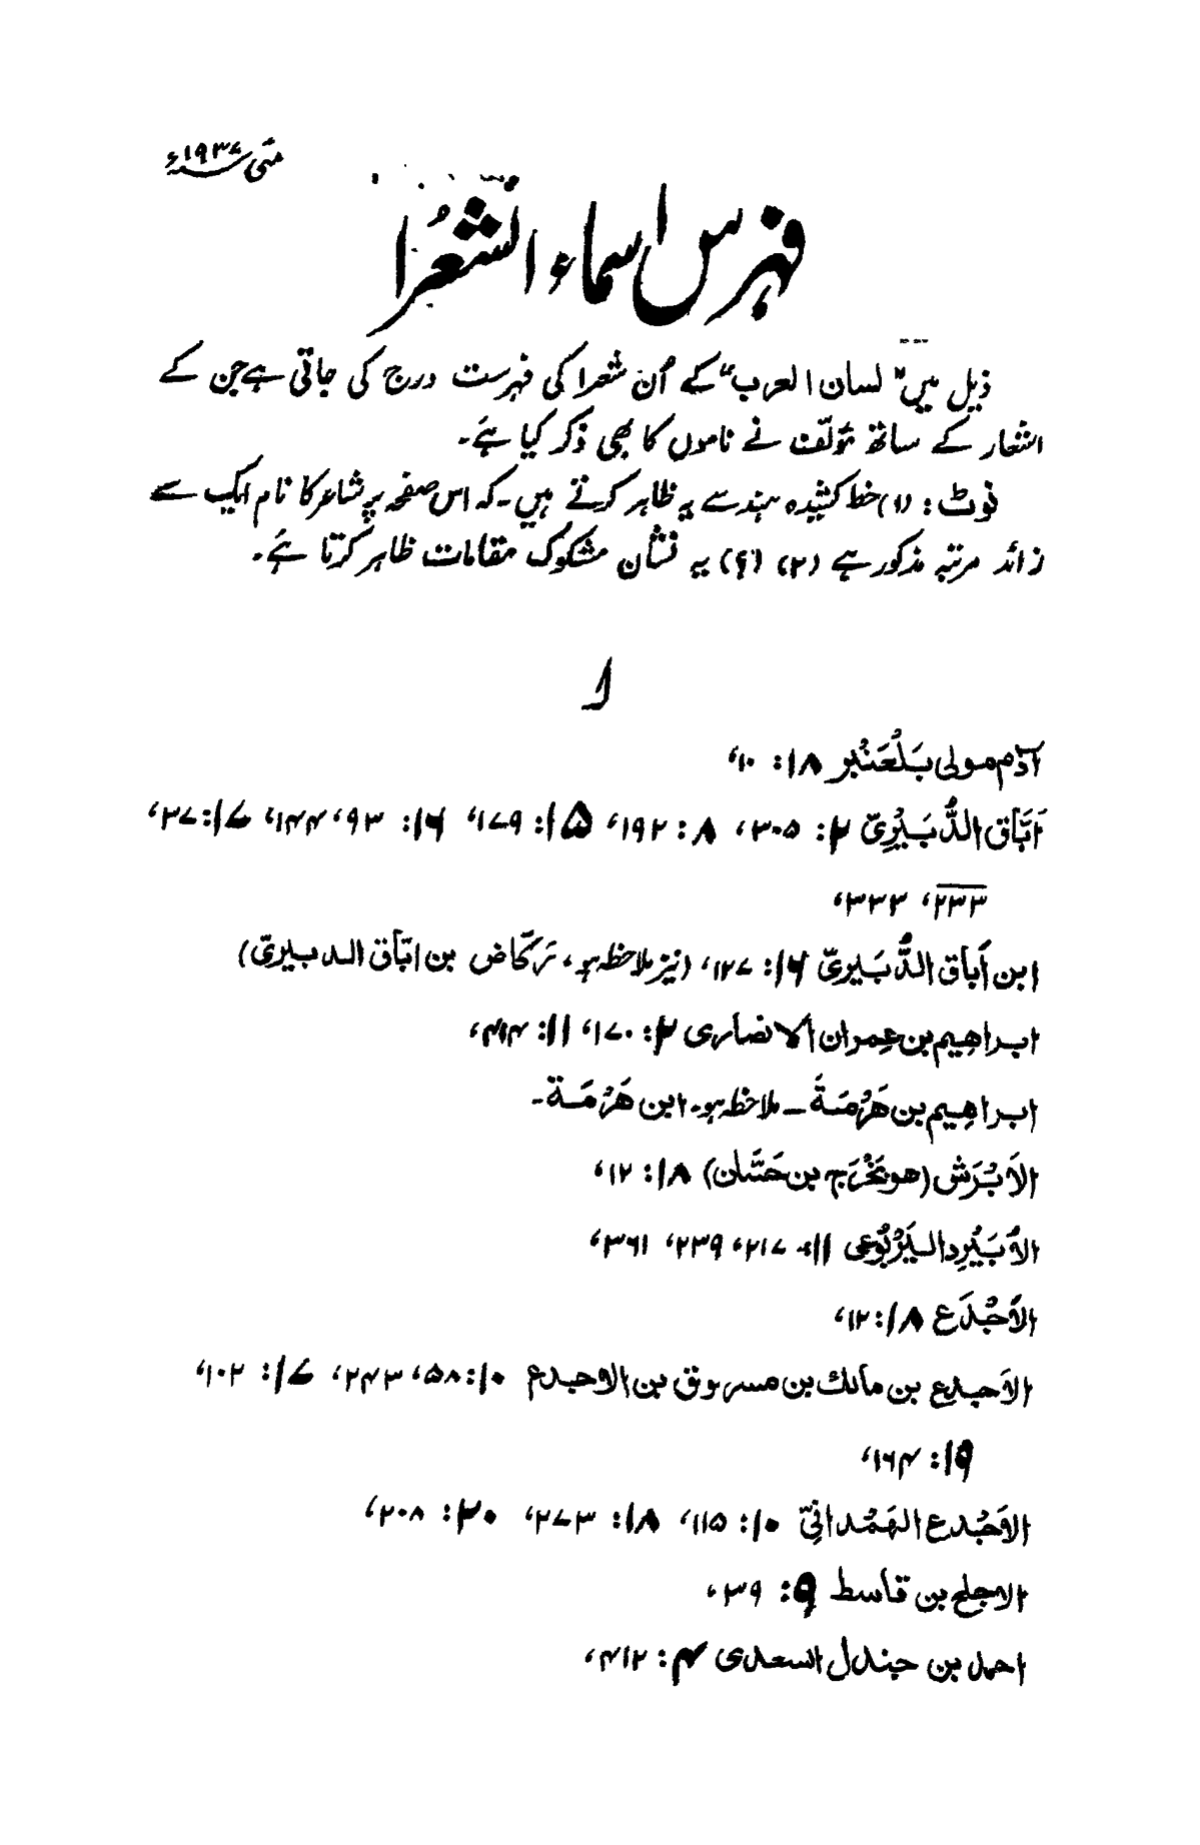 مئی ۱۹۳۷ء
فہرس اسماء الشعرا
ذیل میں "لسان العرب" کے اُن شعرا کی فہرست درج کی جاتی ہے جن کے
اشعار کے ساتھ مؤلّف نے ناموں کا بھی ذکر کیا ہے۔
نوٹ: (۱) خط کشیدہ ہندسے یہ ظاہر کرتے ہیں۔ کہ اس صفحہ پر شاعر کا نام ایک سے
زائد مرتبہ مذکور ہے (۲) (؟) یہ نشان مشکوک مقامات ظاہر کرتا ہے۔
ا
آدم مولی بَلْعَنْبر ۱۸: ۱۰،
اَبَّاق الدُّبَیْرِیّ ۲: ۳۰۵، ۸: ۱۹۲، ۱۵: ۱۷۹، ۱۶: ۹۳، ۱۴۴، ۱۷: ۳۷،
۲۳۳، ۳۳۳،
ابن اَبَّاق الدُّبَیریّ ۱۶: ۱۲۷، (نیز ملاحظہ ہو، رَکّاض بن ابّاق الدبیریّ)
ابراھیم بن عِمران الانصاری ۲: ۱۷۰، ۱۱: ۴۱۴،
ابراھِیم بن ھَرْمَۃَ ـ ملاحظہ ہو۔ ابن ھَرْمَۃ۔
الاَبْرَش (ھو بَخْرَج بن حَسَّان) ۱۸: ۱۲،
الاُبَیْرِد الیَرْبُوعی ۱۱: ۲۱۷، ۲۳۹، ۳۶۱،
الاَجْدَع ۱۸: ۱۲،
الاَجدع بن مالك بن مسروق بن الاجدع ۱۰: ۵۸، ۲۴۳، ۱۷: ۱۰۲،
۱۹: ۱۶۴،
الاَجْدع الھَمْدانِیّ ۱۰: ۱۱۵، ۱۸: ۲۷۳، ۲۰: ۲۰۸،
الاجلح بن قاسط ۹: ۳۹،
احمد بن جندل السعدی ۴: ۴۱۲،